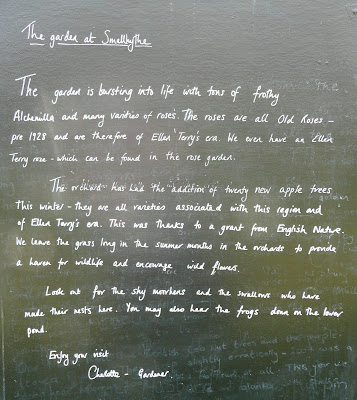 The garden at Smallhythe
The garden is bursting into life with tons of frothy
Alchemilla and many varities of roses. The roses are all Old Roses -
pre 1928 and are therefore of Ellen Terry's era. We even have an Ellen
Terry rose - which can be found in the rose garden.
The orchard has had the addition of twenty new apple trees
this winter - they are all varieties associated with this region and
of Ellen Terry's era. This was thanks to a grant from English Nature.
We leave the grass long in the summer months in the orchards to provide
a haven for wildlife and encourage wild flowers.
Look out for the shy moorhens and the swallows who have
made their nests here. You may also hear the frogs down on the lower
pond.
Enjoy your visit
Charlotte - Gardener.